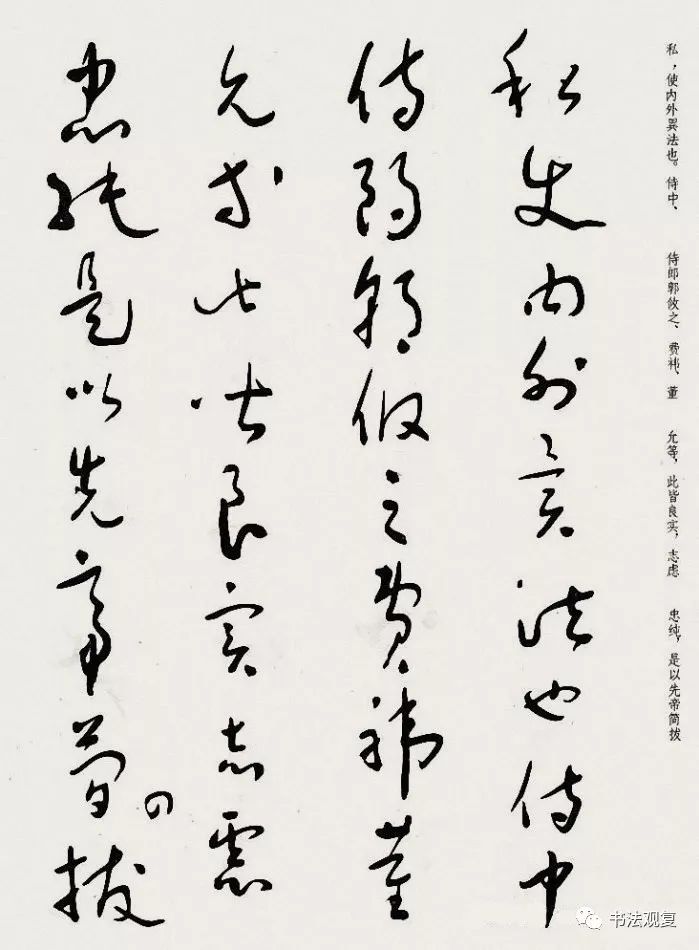 私，使内外异法也。侍中、
侍郎郭攸之、费祎、董
允等，此皆良实，志虑
忠纯，是以先帝简拔
私使内外異法也侍中
侍郎郭攸之費禕董
允等此皆良實志慮
忠純是以先帝簡拔
书法观复